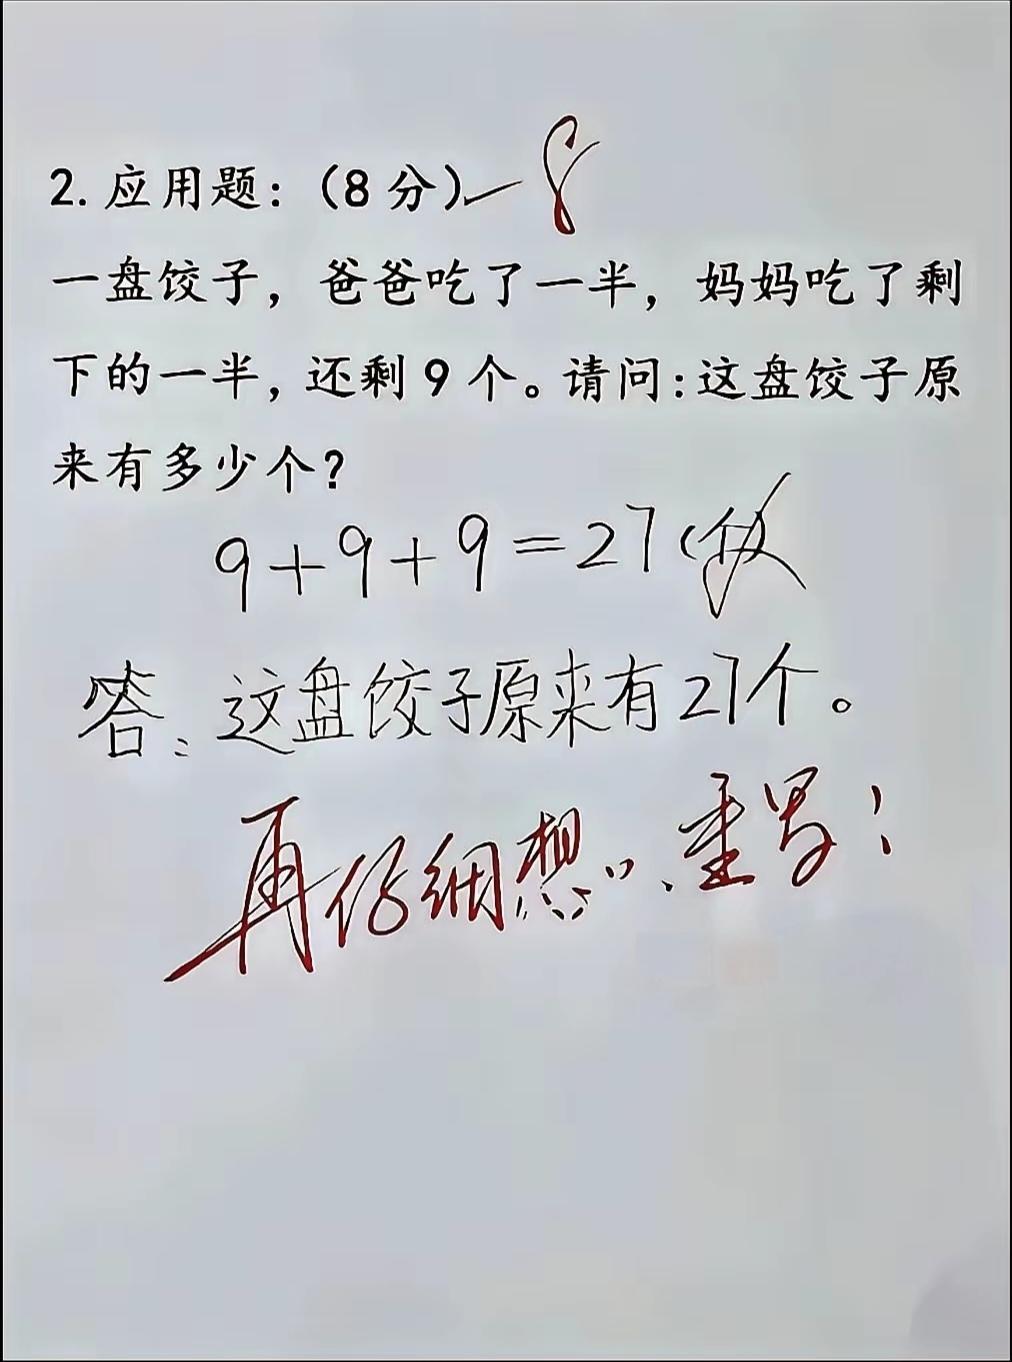 2.应用题：（8分）-8
一盘饺子，爸爸吃了一半，妈妈吃了剩
下的一半，还剩9个。请问：这盘饺子原
来有多少个？
9+9+9=27(个)
答：这盘饺子原来有27个。
再仔细想想，重写！